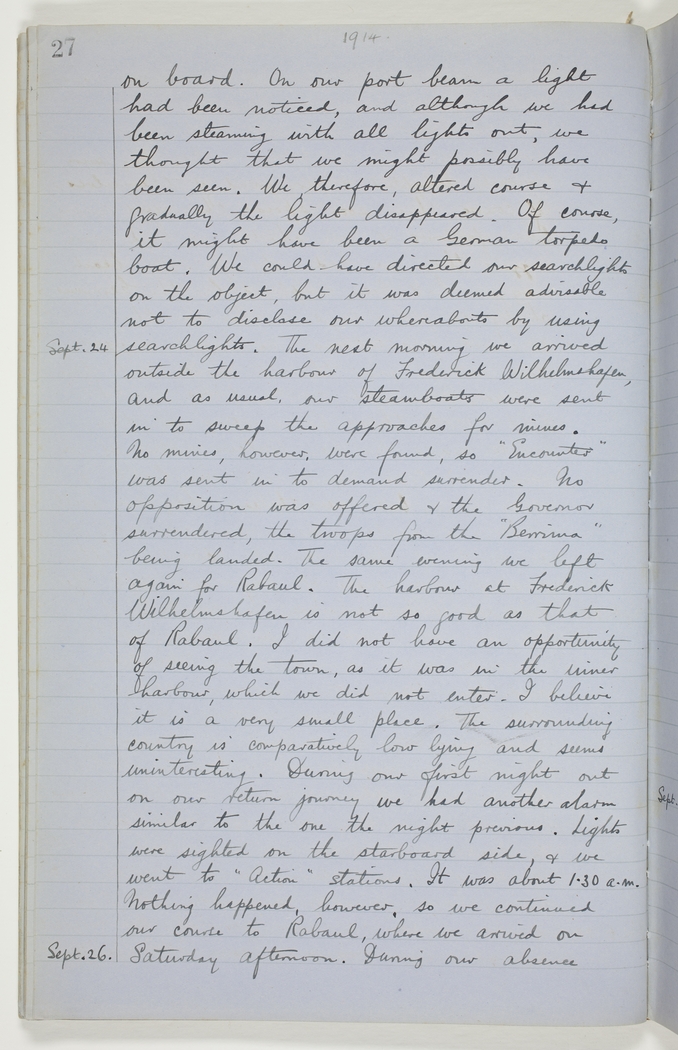 27
1914.
on board. On our port beam a light
had been noticed, and although we had
been steaming with all lights out, we
thought that we might possibly have
been seen. We therefore, altered course &
gradually the light disappeared. Of course,
it might have been a German torpedo
boat. We could have directed our searchlights
on the object, but it was deemed advisable
not to disclose our whereabouts by using
Sept. 24 searchlights. The next morning we arrived
outside the harbour of Frederick Wilhelmshafen,
and as usual, our steamboats were sent
in to sweep the approaches for mines.
No mines, however, were found, so "Encounter"
was sent in to demand surrender. No
opposition was offered & the Governor
surrendered, the troops from the "Berrima"
being landed. The same evening we left
again for Rabaul. The harbour at Frederick
Wilhelmshafen is not so good as that
of Rabaul. I did not have an opportunity
of seeing the town, as it was in the inner
harbour, which we did not enter. I believe
it is a very small place. The surrounding
country is comparatively low lying and seems
uninteresting. During our first night out
on our return journey we had another alarm
Sept.
similar to the one the night previous. Lights
were sighted on the starboard side, & we
went to "Action" stations. It was about 1.30 a.m.
Nothing happened, however, so we continued
our course to Rabaul, where we arrived on
Sept. 26. Saturday afternoon. During our absence